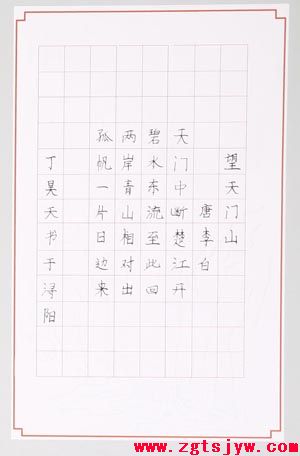 望天门山
唐李白
天门中断楚江开
碧水东流至此回
两岸青山相对出
孤帆一片日边来
丁昊天书于浔阳
www.zgtsjyw.com